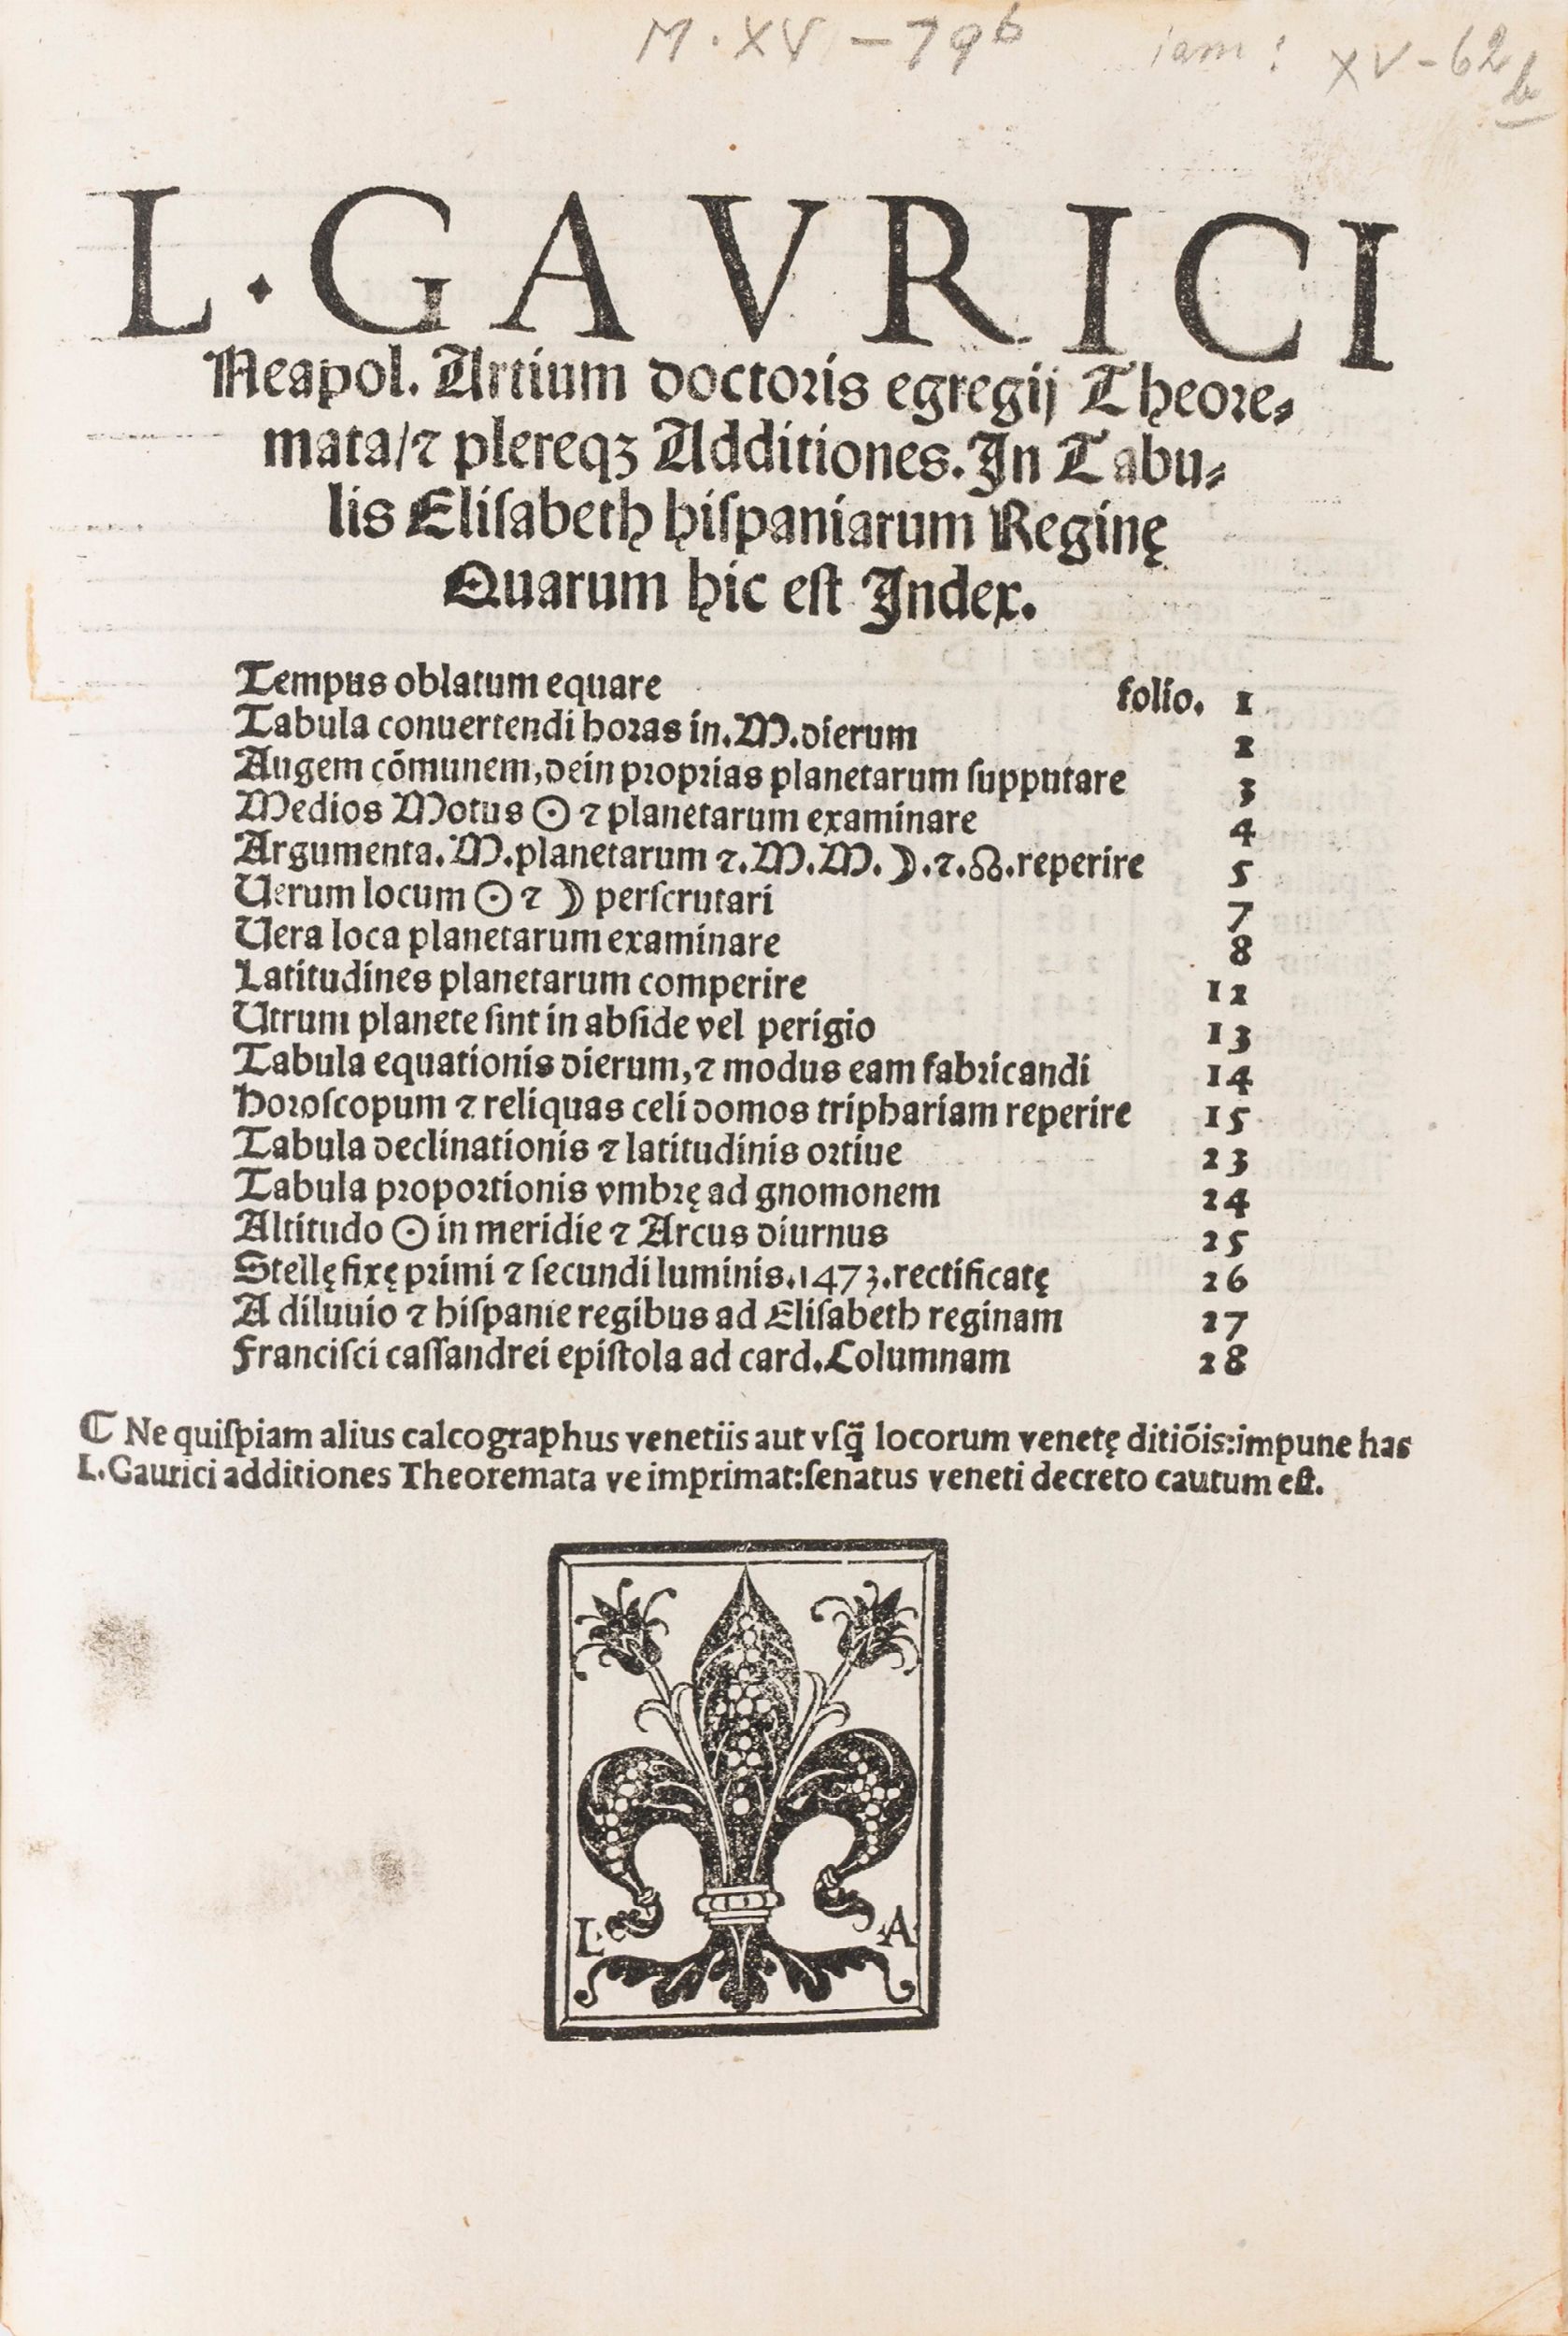 M. XV – 79b iam: XV – 62b
L. GAVRICI
Neapol. Artium doctoris egregij Theore⸗
mata/⁊ plereqꝫ Additiones. In Tabu⸗
lis Eliſabeth hiſpaniarum Reginę
Quarum hic eſt Index.
Tempus oblatum equare folio. 1
Tabula conuertendi horas in. M. dierum 2
Augem cōmunem, dein proprias planetarum ſupputare 3
Medios Motus ☉ ⁊ planetarum examinare 4
Argumenta. M. planetarum ⁊. M. M. ☽. ⁊. ☊. reperire 5
Uerum locum ☉ ⁊ ☽ perſcrutari 7
Uera loca planetarum examinare 8
Latitudines planetarum comperire 12
Utrum planete ſint in abſide vel perigio 13
Tabula equationis dierum, ⁊ modus eam fabricandi 14
Horoſcopum ⁊ reliquas celi domos triphariam reperire 15
Tabula declinationis ⁊ latitudinis ortiue 23
Tabula proportionis vmbrę ad gnomonem 24
Altitudo ☉ in meridie ⁊ Arcus diurnus 25
Stellę fixę primi ⁊ ſecundi luminis. 1473. rectificatę 26
A diluuio ⁊ hiſpanie regibus ad Eliſabeth reginam 27
Franciſci caſſandrei epiſtola ad card. Columnam 28
ℂ Ne quiſpiam alius calcographus venetiis aut vſq̃ locorum venetę ditiōis: impune has
L. Gaurici additiones Theoremata ve imprimat: ſenatus veneti decreto cautum eſt.
L. .A.